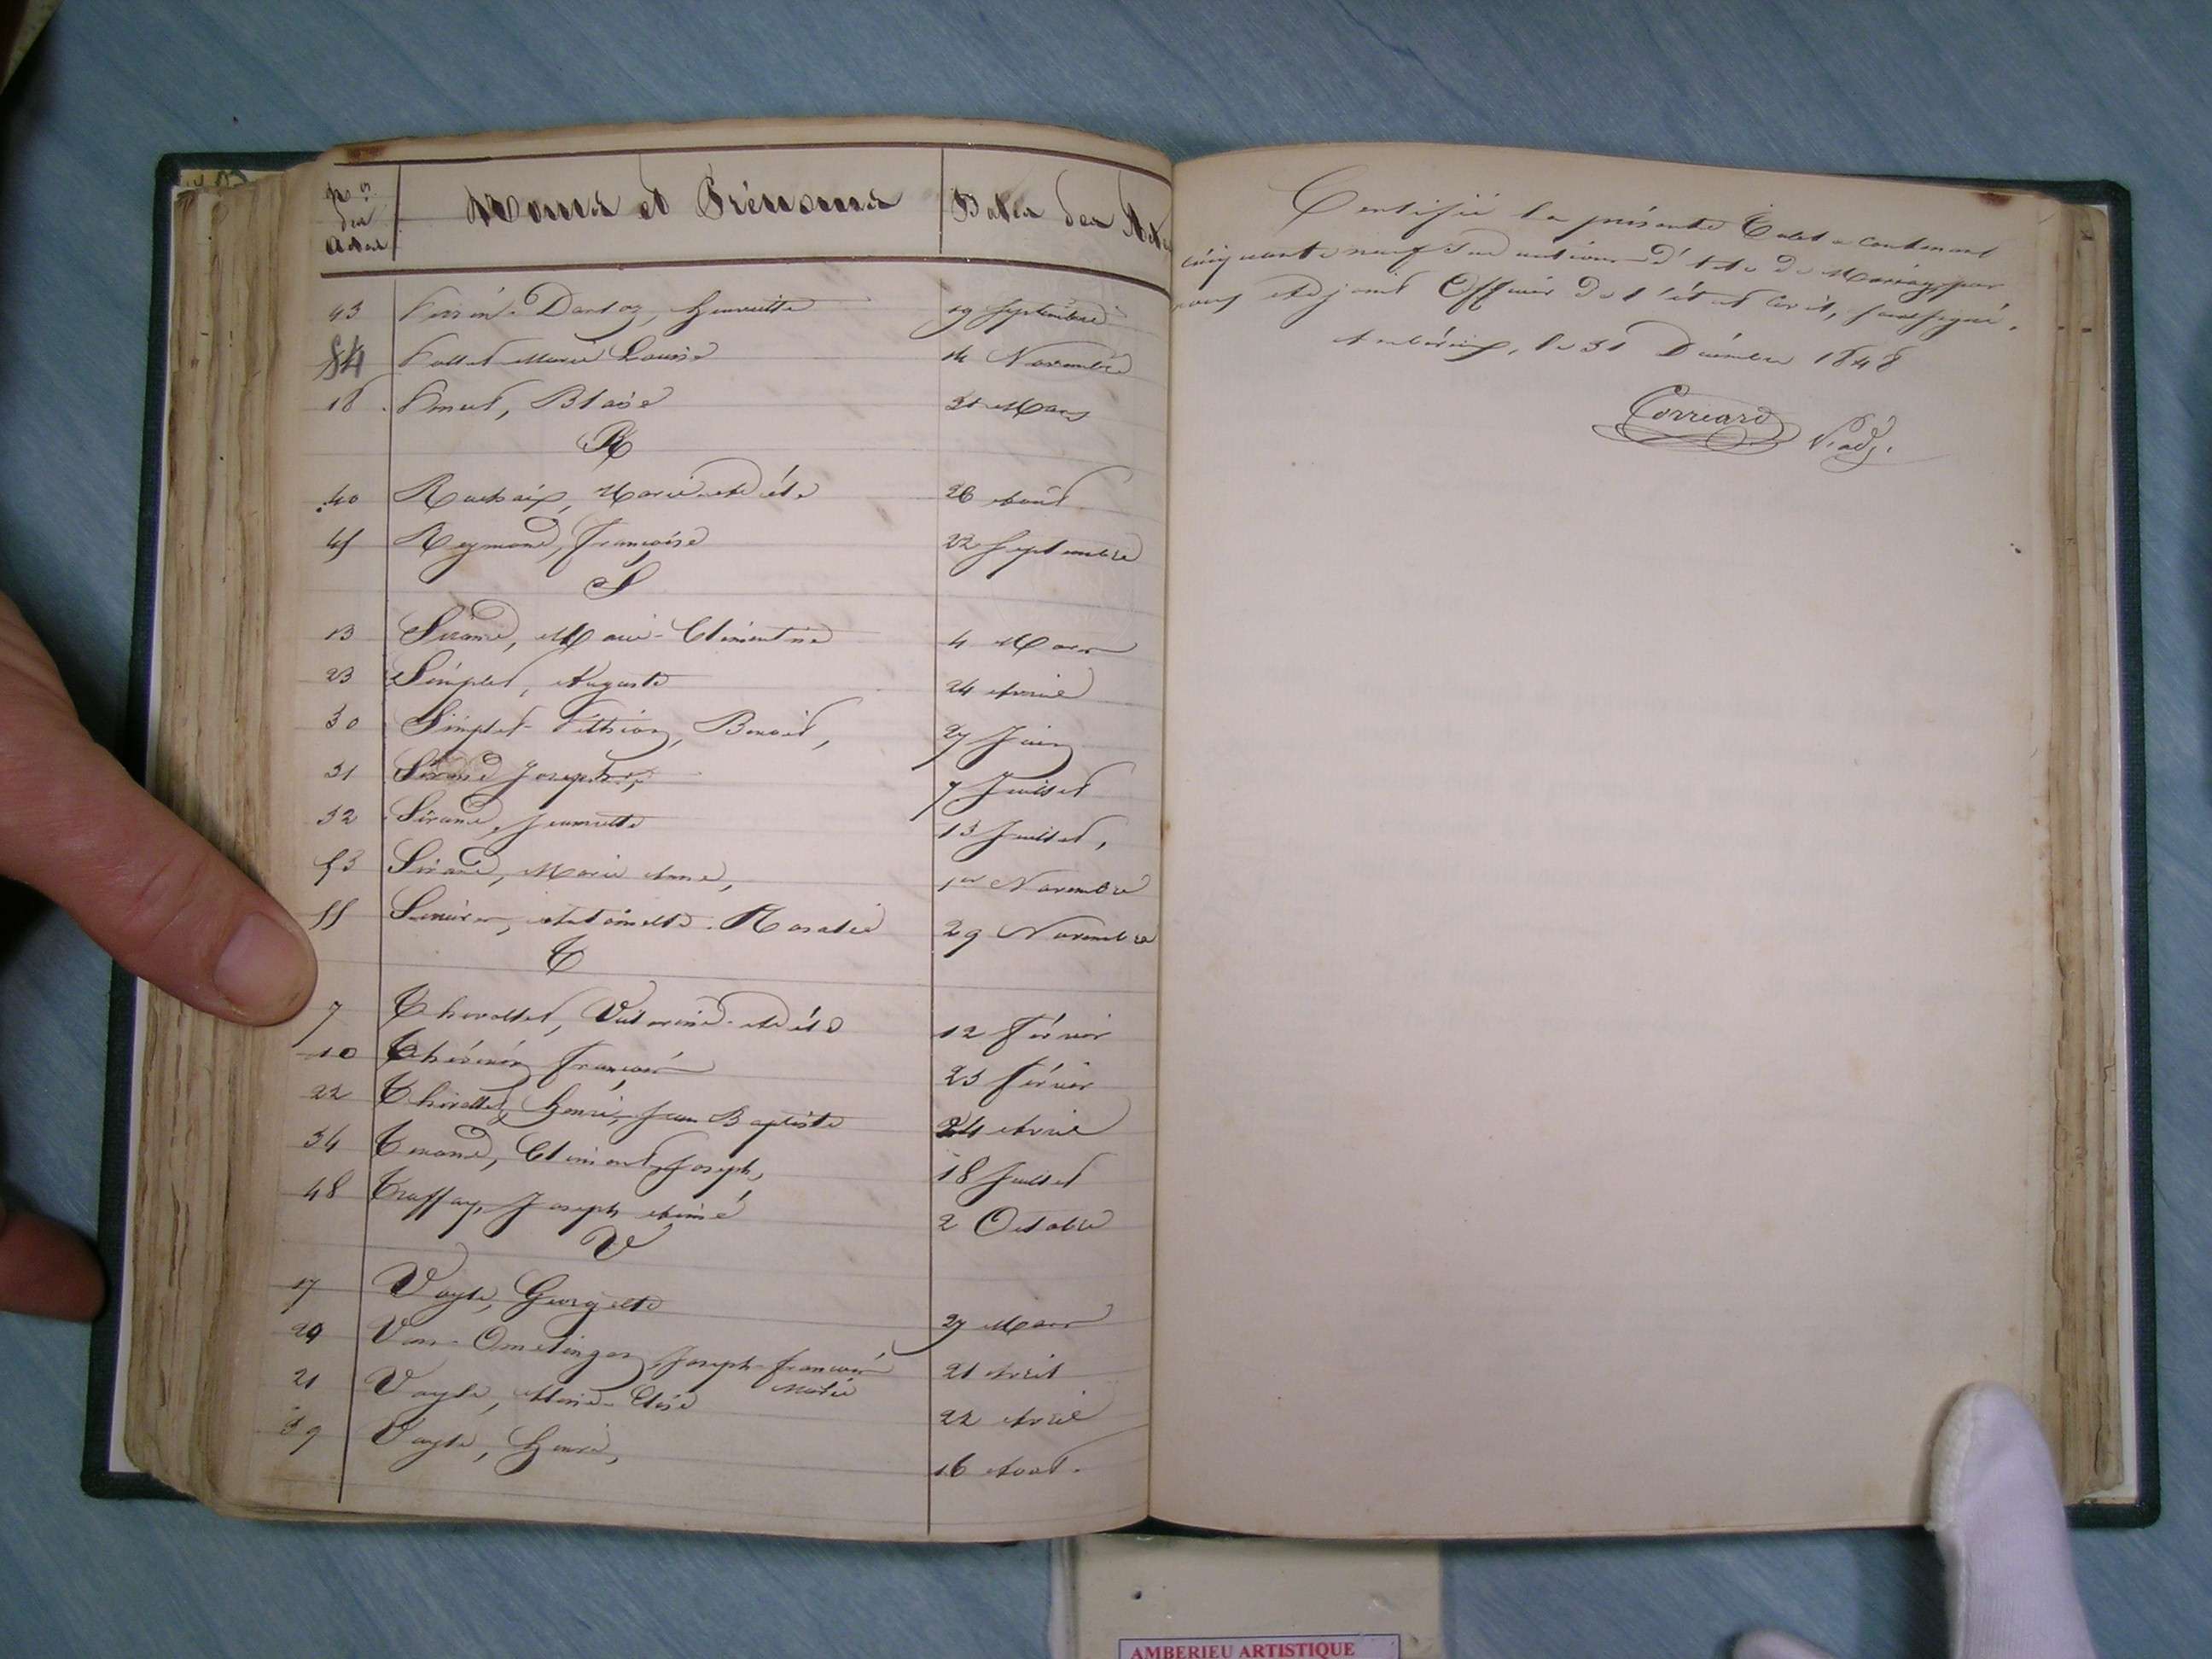 Nos des Actes
Noms et Prénoms
Dates des Actes
43 Perrin-Dardoz, Henriette 19 Septembre
54 Pollet Marie Louise 14 Novembre
18 Blaise 31 Mars
R
40 Ruchaix, Marie-Adèle 26 Août
45 Reymond, Françoise 22 Septembre
S
13 Sirand, Marie-Clémentine 4 Mars
23 Simplet, Auguste 24 Avril
30 Simplet-Péthion, Benoit, 27 Juin
31 Sirand Joseph, 7 Juillet
32 Sirand, Jeannette 13 Juillet,
53 Sirand, Marie Anne, 1er Novembre
55 Antoinette-Rosalie 29 Novembre
T
7 Victorine-Adèle 12 Février
10 Thévenin François 23 Février
22 Henri, Jean Baptiste 24 Avril
34 Tenand, Clément, Joseph, 18 Juillet
48 Joseph Aimé 2 Octobre
V
17 Vayle, Georgette 27 Mars
20 Joseph-François 21 Avril
Marie
21 Vayle, Marie-Elise 22 Avril
39 Vayle, Henri, 16 Août.
Certifié la présente Table contenant
cinquante neuf déclarations d'acte de Mariage, par
nous adjoint Officier de l'état Civil, soussigné.
Ambérieux, le 31 Décembre 1848
Correard
AMBERIEU ARTISTIQUE